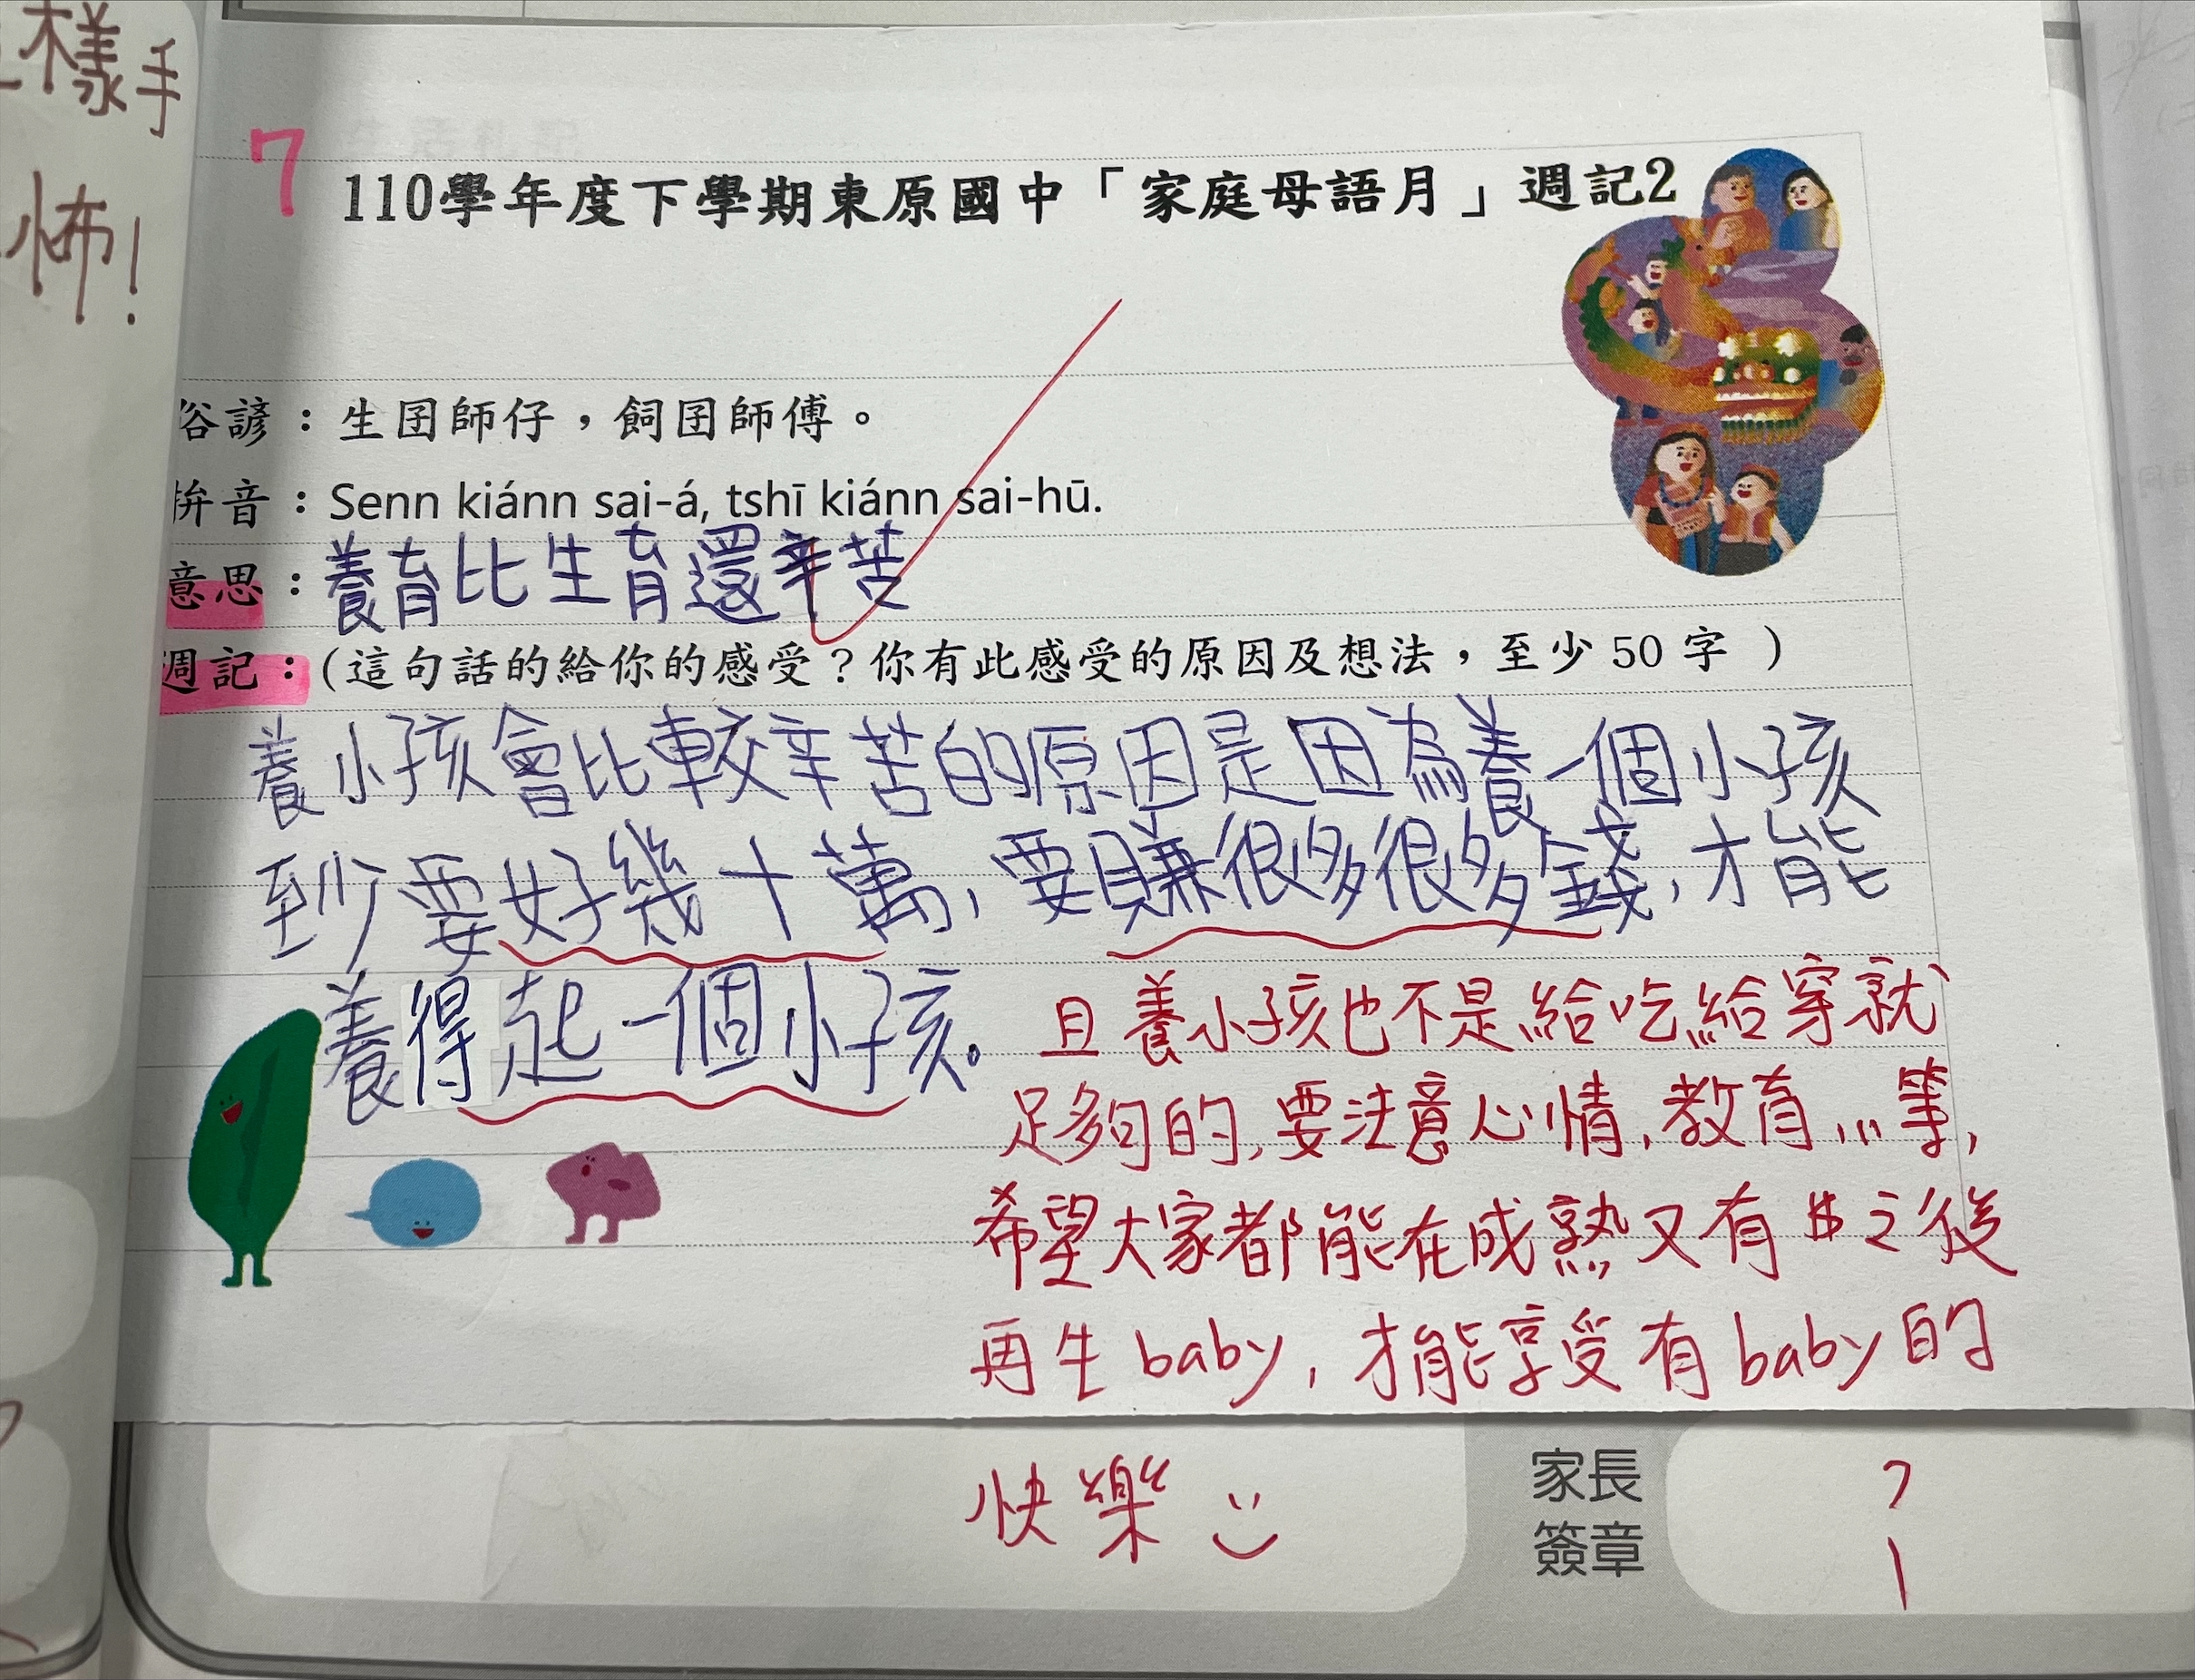 樣手
怖!
7
110學年度下學期東原國中「家庭母語月」週記2
俗諺：生囝師仔，飼囝師傅。
拚音：Senn kiánn sai-á, tshī kiánn sai-hū.
意思：養育比生育還辛苦
週記：(這句話的給你的感受？你有此感受的原因及想法，至少 50 字 )
養小孩會比較辛苦的原因是因為養一個小孩
至少要好幾十萬，要賺很多很多錢，才能
養得起一個小孩。
且養小孩也不是給吃給穿就
足夠的，要注意心情，教育...等，
希望大家都能在成熟又有$之後
再生baby，才能享受有baby的
快樂
家長
簽章
?